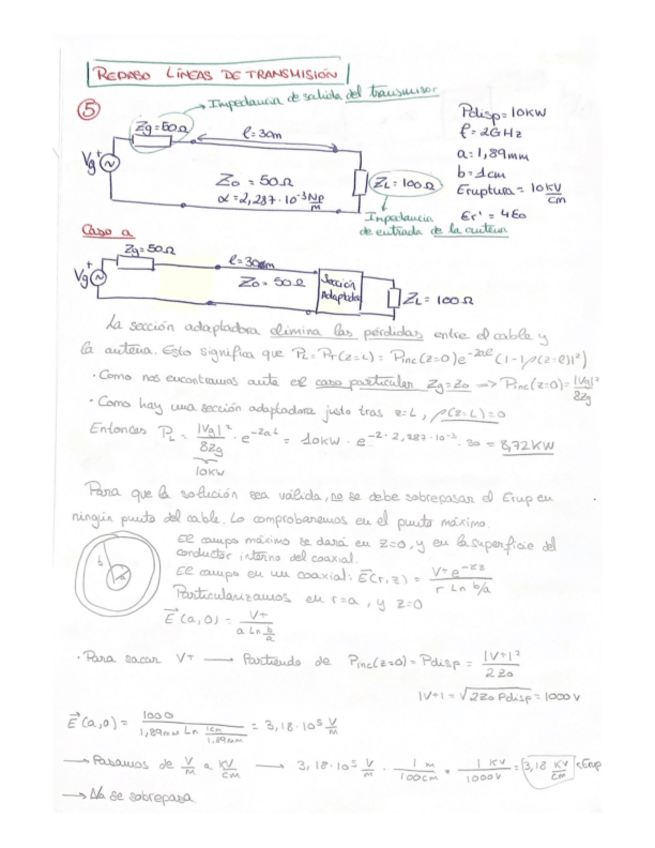 REPASO LÍNEAS DE TRANSMISIÓN
⑤
Impedancia de salida del transmisor
Zg=50Ω
l=30m
Vg
+
Z₀ = 50Ω
α=2,287·10⁻³ Np/m
ZL=100Ω
Impedancia
de entrada de la antena
Pdisp=10KW
f=2GHz
a=1,89mm
b=1cm
Eruptura = 10 KV/cm
Er' = 4E₀
Caso a
Zg=50Ω
Vg
+
l=30m
Z₀=50Ω
Sección
Adaptadora
ZL=100Ω
La sección adaptadora elimina las pérdidas entre el cable y
la antena. Esto significa que PL=PT(z=L)=Pinc(z=0)e^-2αl (1-|ρ(z=l)|²)
· Como nos encontramos ante el caso particular Zg=Z₀ => Pinc(z=0)=|Vg|²/8Zg
· Como hay una sección adaptadora justo tras z=L, ρ(z=L)=0
Entonces PL = |Vg|²/8Zg · e^-2αL = 10KW · e^-2·2,287·10⁻³·30 = 8,72KW
10KW
Para que la solución sea válida, no se debe sobrepasar el Erup en
ningún punto del cable. Lo comprobaremos en el punto máximo.
b
a
El campo máximo se dará en z=0, y en la superficie del
conductor interno del coaxial.
El campo en un coaxial: E⃗(r,z) = V+e^-γz / r Ln b/a
Particularizamos en r=a, y z=0
E⃗(a,0) = V+ / a Ln b/a
· Para sacar V+ → Partiendo de Pinc(z=0)=Pdisp = |V+|²/2Z₀
|V+| = √2Z₀Pdisp = 1000V
E⃗(a,0) = 1000 / 1,89mm Ln 1cm/1,89mm = 3,18·10⁵ V/m
→ Pasamos de V/m a KV/cm → 3,18·10⁵ V/m · 1m/100cm · 1KV/1000V = 3,18 KV/cm < Erup
→ No se sobrepasa